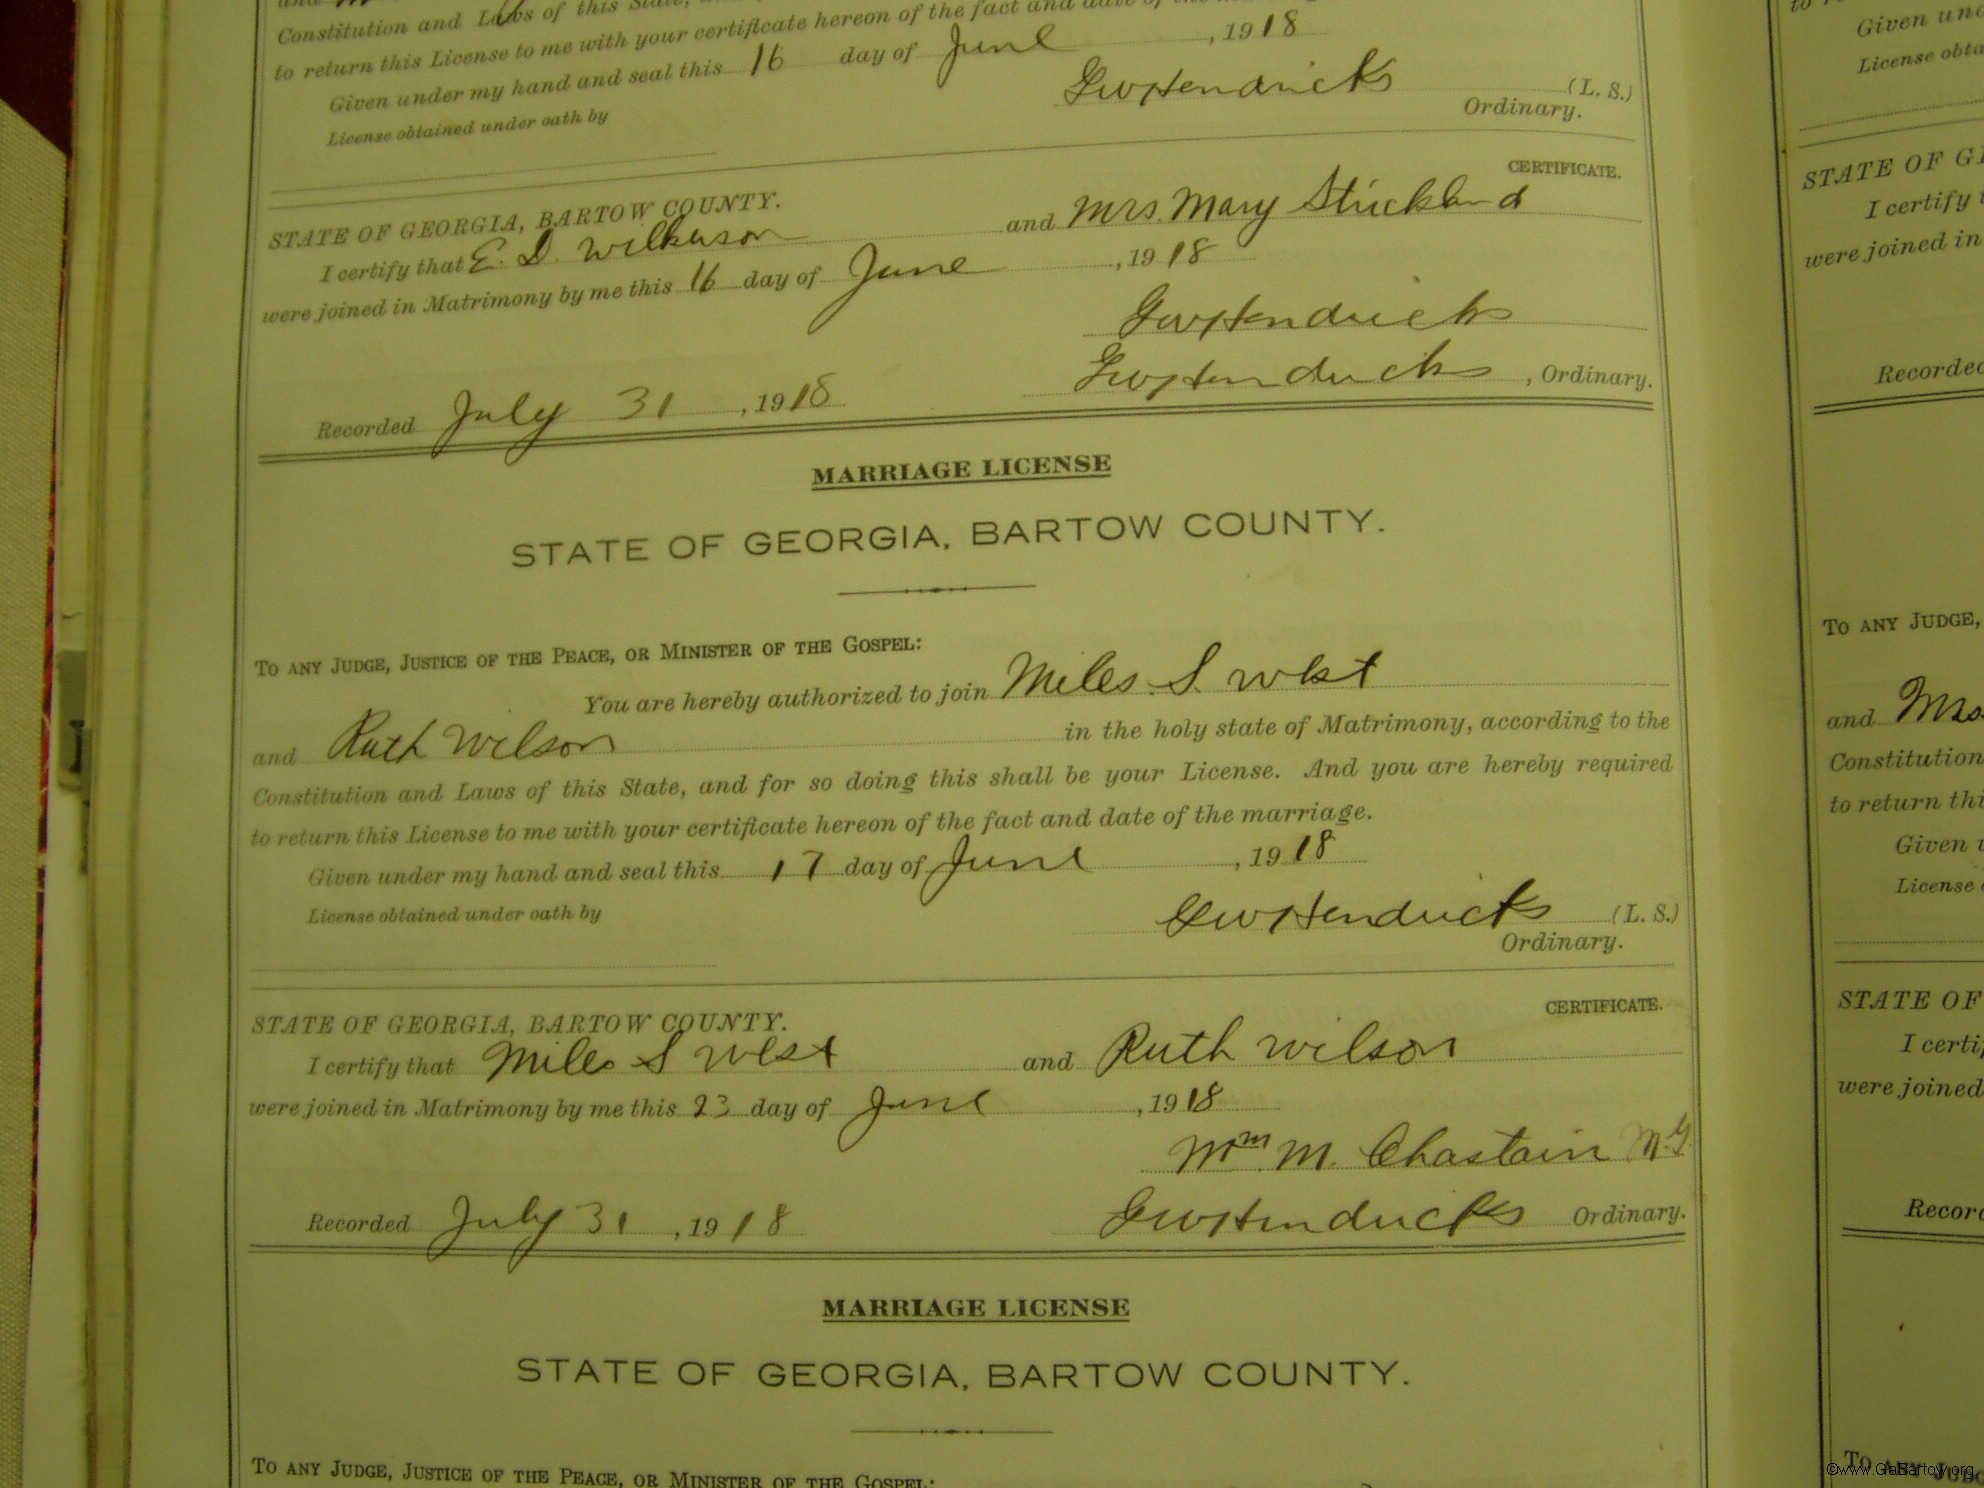 Constitution and Laws of this State,
to return this License to me with your certificate hereon of the fact and date of the
Given under my hand and seal this 16 day of June, 1918
License obtained under oath by
GW Hendricks (L. S.)
Ordinary.
CERTIFICATE.
STATE OF GEORGIA, BARTOW COUNTY.
I certify that E. D. Wilkerson and Mrs. Mary Strickland
were joined in Matrimony by me this 16 day of June, 1918
GW Hendricks
Recorded July 31, 1918 GW Hendricks, Ordinary.
MARRIAGE LICENSE
STATE OF GEORGIA, BARTOW COUNTY.
TO ANY JUDGE, JUSTICE OF THE PEACE, OR MINISTER OF THE GOSPEL:
You are hereby authorized to join Miles. S. West
and Ruth Wilson in the holy state of Matrimony, according to the
Constitution and Laws of this State, and for so doing this shall be your License. And you are hereby required
to return this License to me with your certificate hereon of the fact and date of the marriage.
Given under my hand and seal this 17 day of June, 1918
License obtained under oath by GW Hendricks (L. S.)
Ordinary.
CERTIFICATE.
STATE OF GEORGIA, BARTOW COUNTY.
I certify that Miles S West and Ruth Wilson
were joined in Matrimony by me this 23 day of June, 1918
Wm. M. Chastain M.G.
Recorded July 31, 1918 GW Hendricks Ordinary.
MARRIAGE LICENSE
STATE OF GEORGIA, BARTOW COUNTY.
TO ANY JUDGE, JUSTICE OF THE PEACE, OR MINISTER OF THE GOSPEL:
Given
License
STATE OF
I certify
were joined in
Recorded
TO ANY JUDGE,
and Mrs.
Constitution
to return
Given
License
STATE OF
I
were joined
TO ANY
©www.GaBartow.org